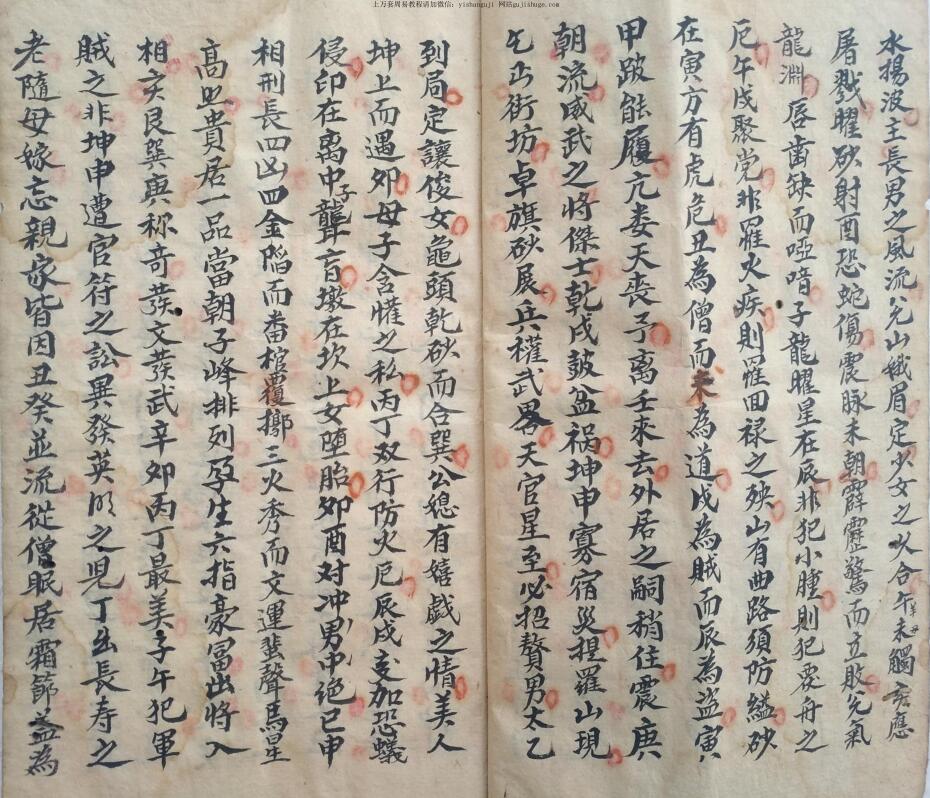 上万套周易教程请加微信：yishanguji 网站gujishuge.com
水揚波主長男之風流兌山娥眉定少女之㕥合午未觸應
屠戮曜砂射酉恐蛇傷震脉未朝霹靂驚而立敗兌氣
龍淵唇齒缺而啞喑子龍曜星在辰非犯小腫則犯覆舟之
厄午戌聚党非羅火疾則罹回禄之殃山有曲路須防縊砂
在寅方有虎危丑為僧而未為道戌為賊而辰為盜寅
甲跛能履亢娄天喪予离壬來去外居之嗣稍住震庚
朝流威武之將傑士乾戌鼓盆禍坤申寡宿災捍羅山現
乞丐街坊卓旗砂展兵權武畧天官星至必招贅男太乙
到局定讓俊女龜頭乾砂而合巽公媳有嬉戲之情美人
坤上而遇夘母子含慛之私丙丁双行防火厄辰戌支加恐蟻
侵印在离中子聾盲墩在坎上女堕胎夘酉对冲男中绝巳申
相刑長四凶四金陷而畨棺覆擲三火秀而文運蜚聲馬星
高照貴居一品當朝子峰排列孕生六指豪冨出將入
相亥艮巽與称奇發文發武辛夘丙丁最美子午犯軍
賊之非坤申遭官符之訟巽發英明之児丁出長寿之
老隨母嫁忘親家皆因丑癸並流從僧眠居霜節盖為